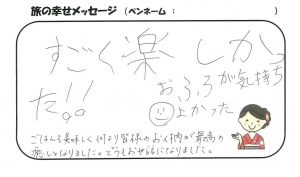 旅の幸せメッセージ （ペンネーム： ）
すごく楽しかっ
た!!
おふろが気持ち
よかった
ごはんも美味しく何より皆様のお人柄が最高の
癒しとなりました。どうもお世話になりました。